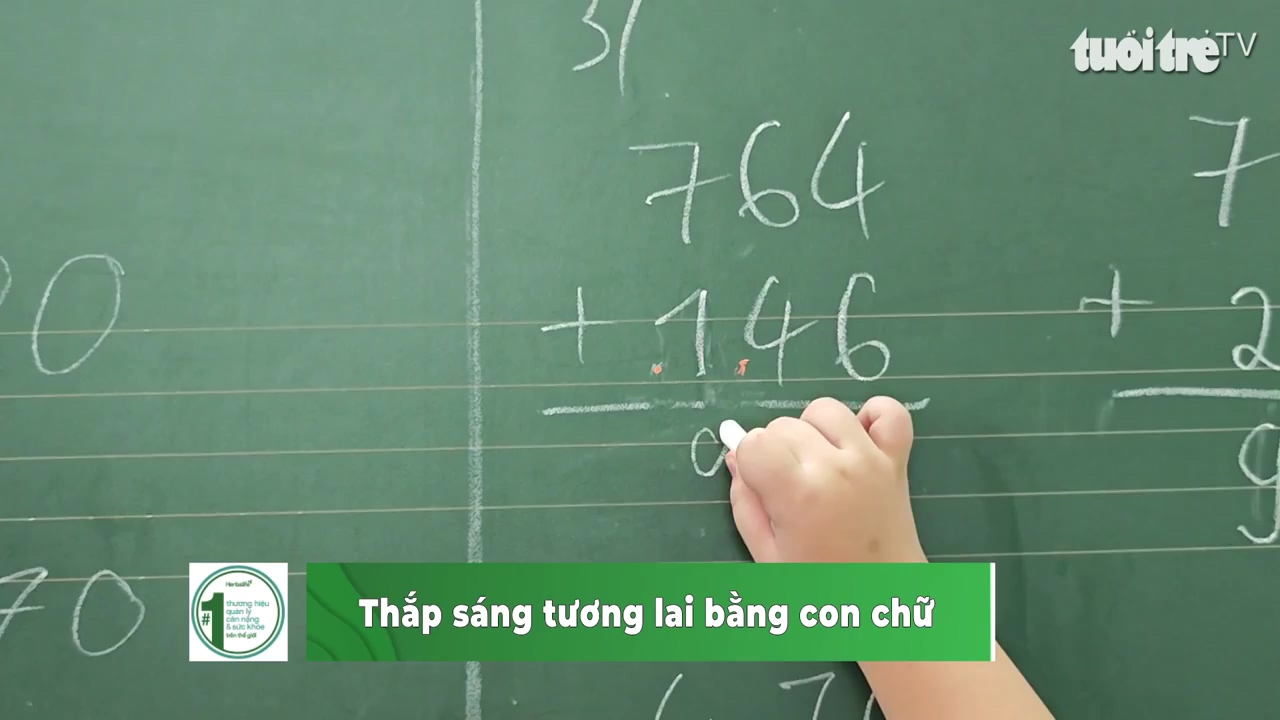 tuổi trẻ TV
764
+ 146
7
+ 2
9
0
70
Herbalife
#1
thương hiệu
quản lý
cân nặng
& sức khỏe
trên thế giới
Thắp sáng tương lai bằng con chữ